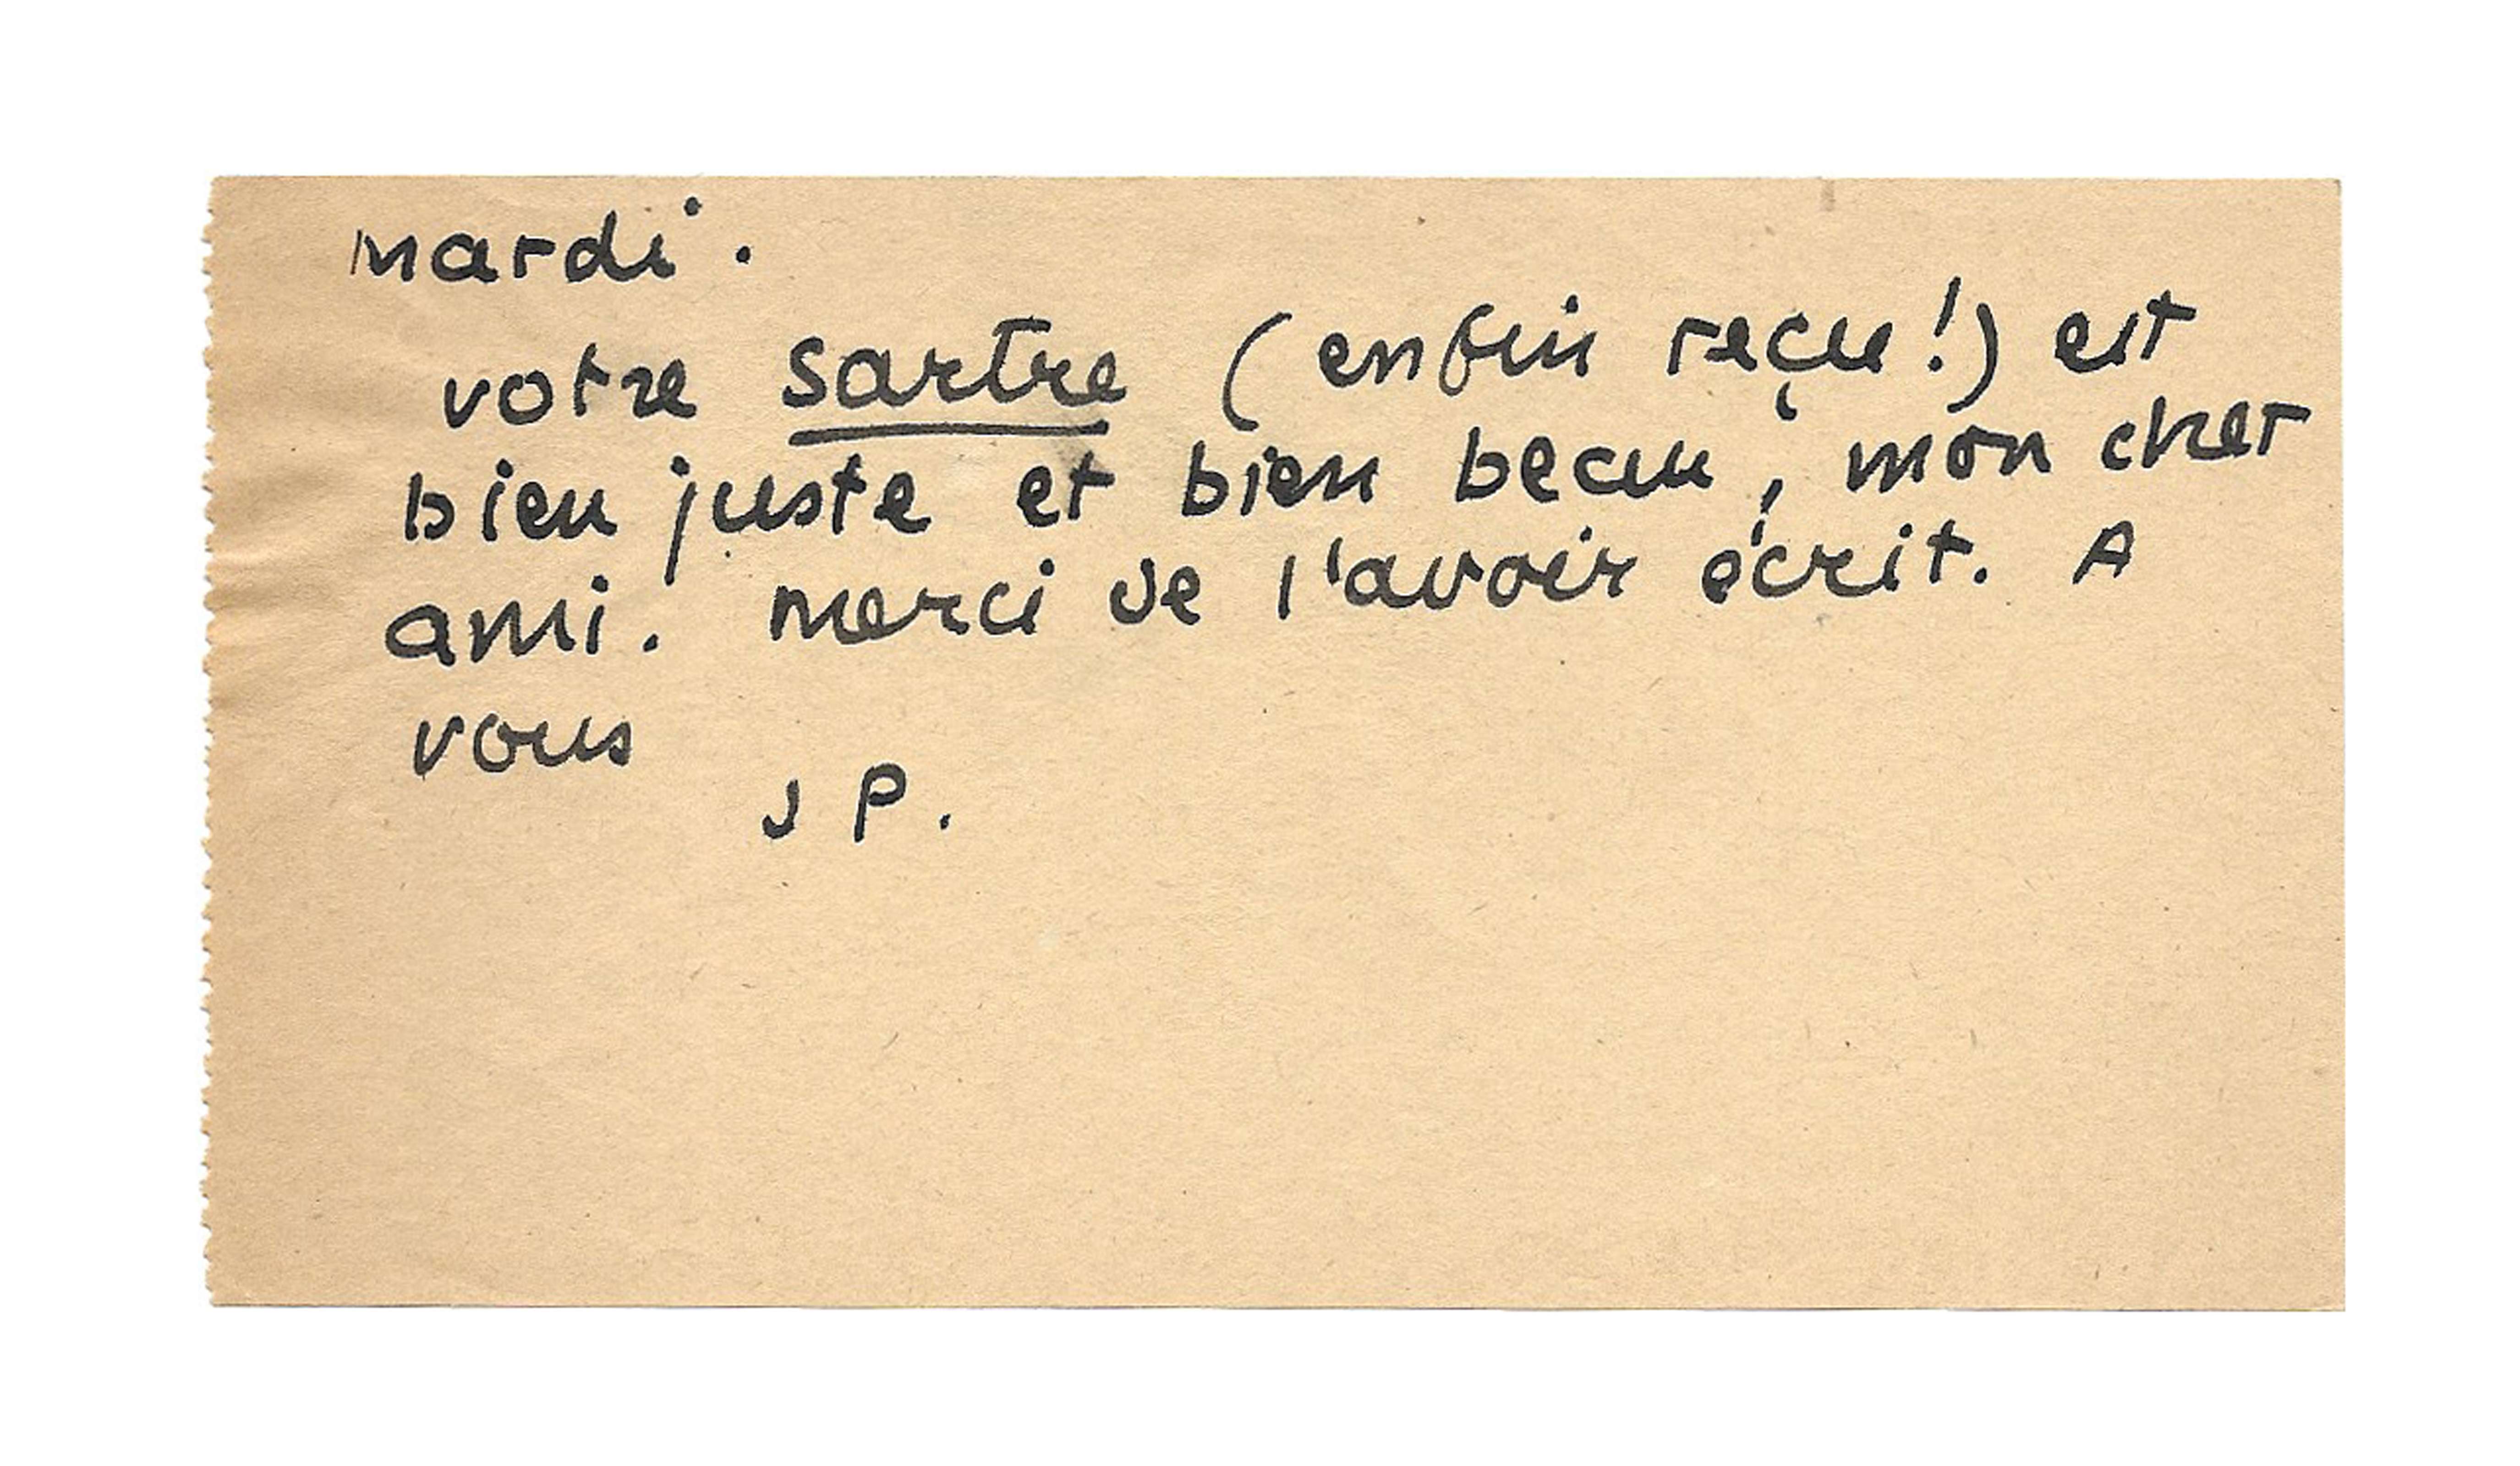 mardi.
votre sartre (enfin reçu!) est
bien juste et bien beau, mon cher
ami. merci de l'avoir écrit. A
vous
J P.